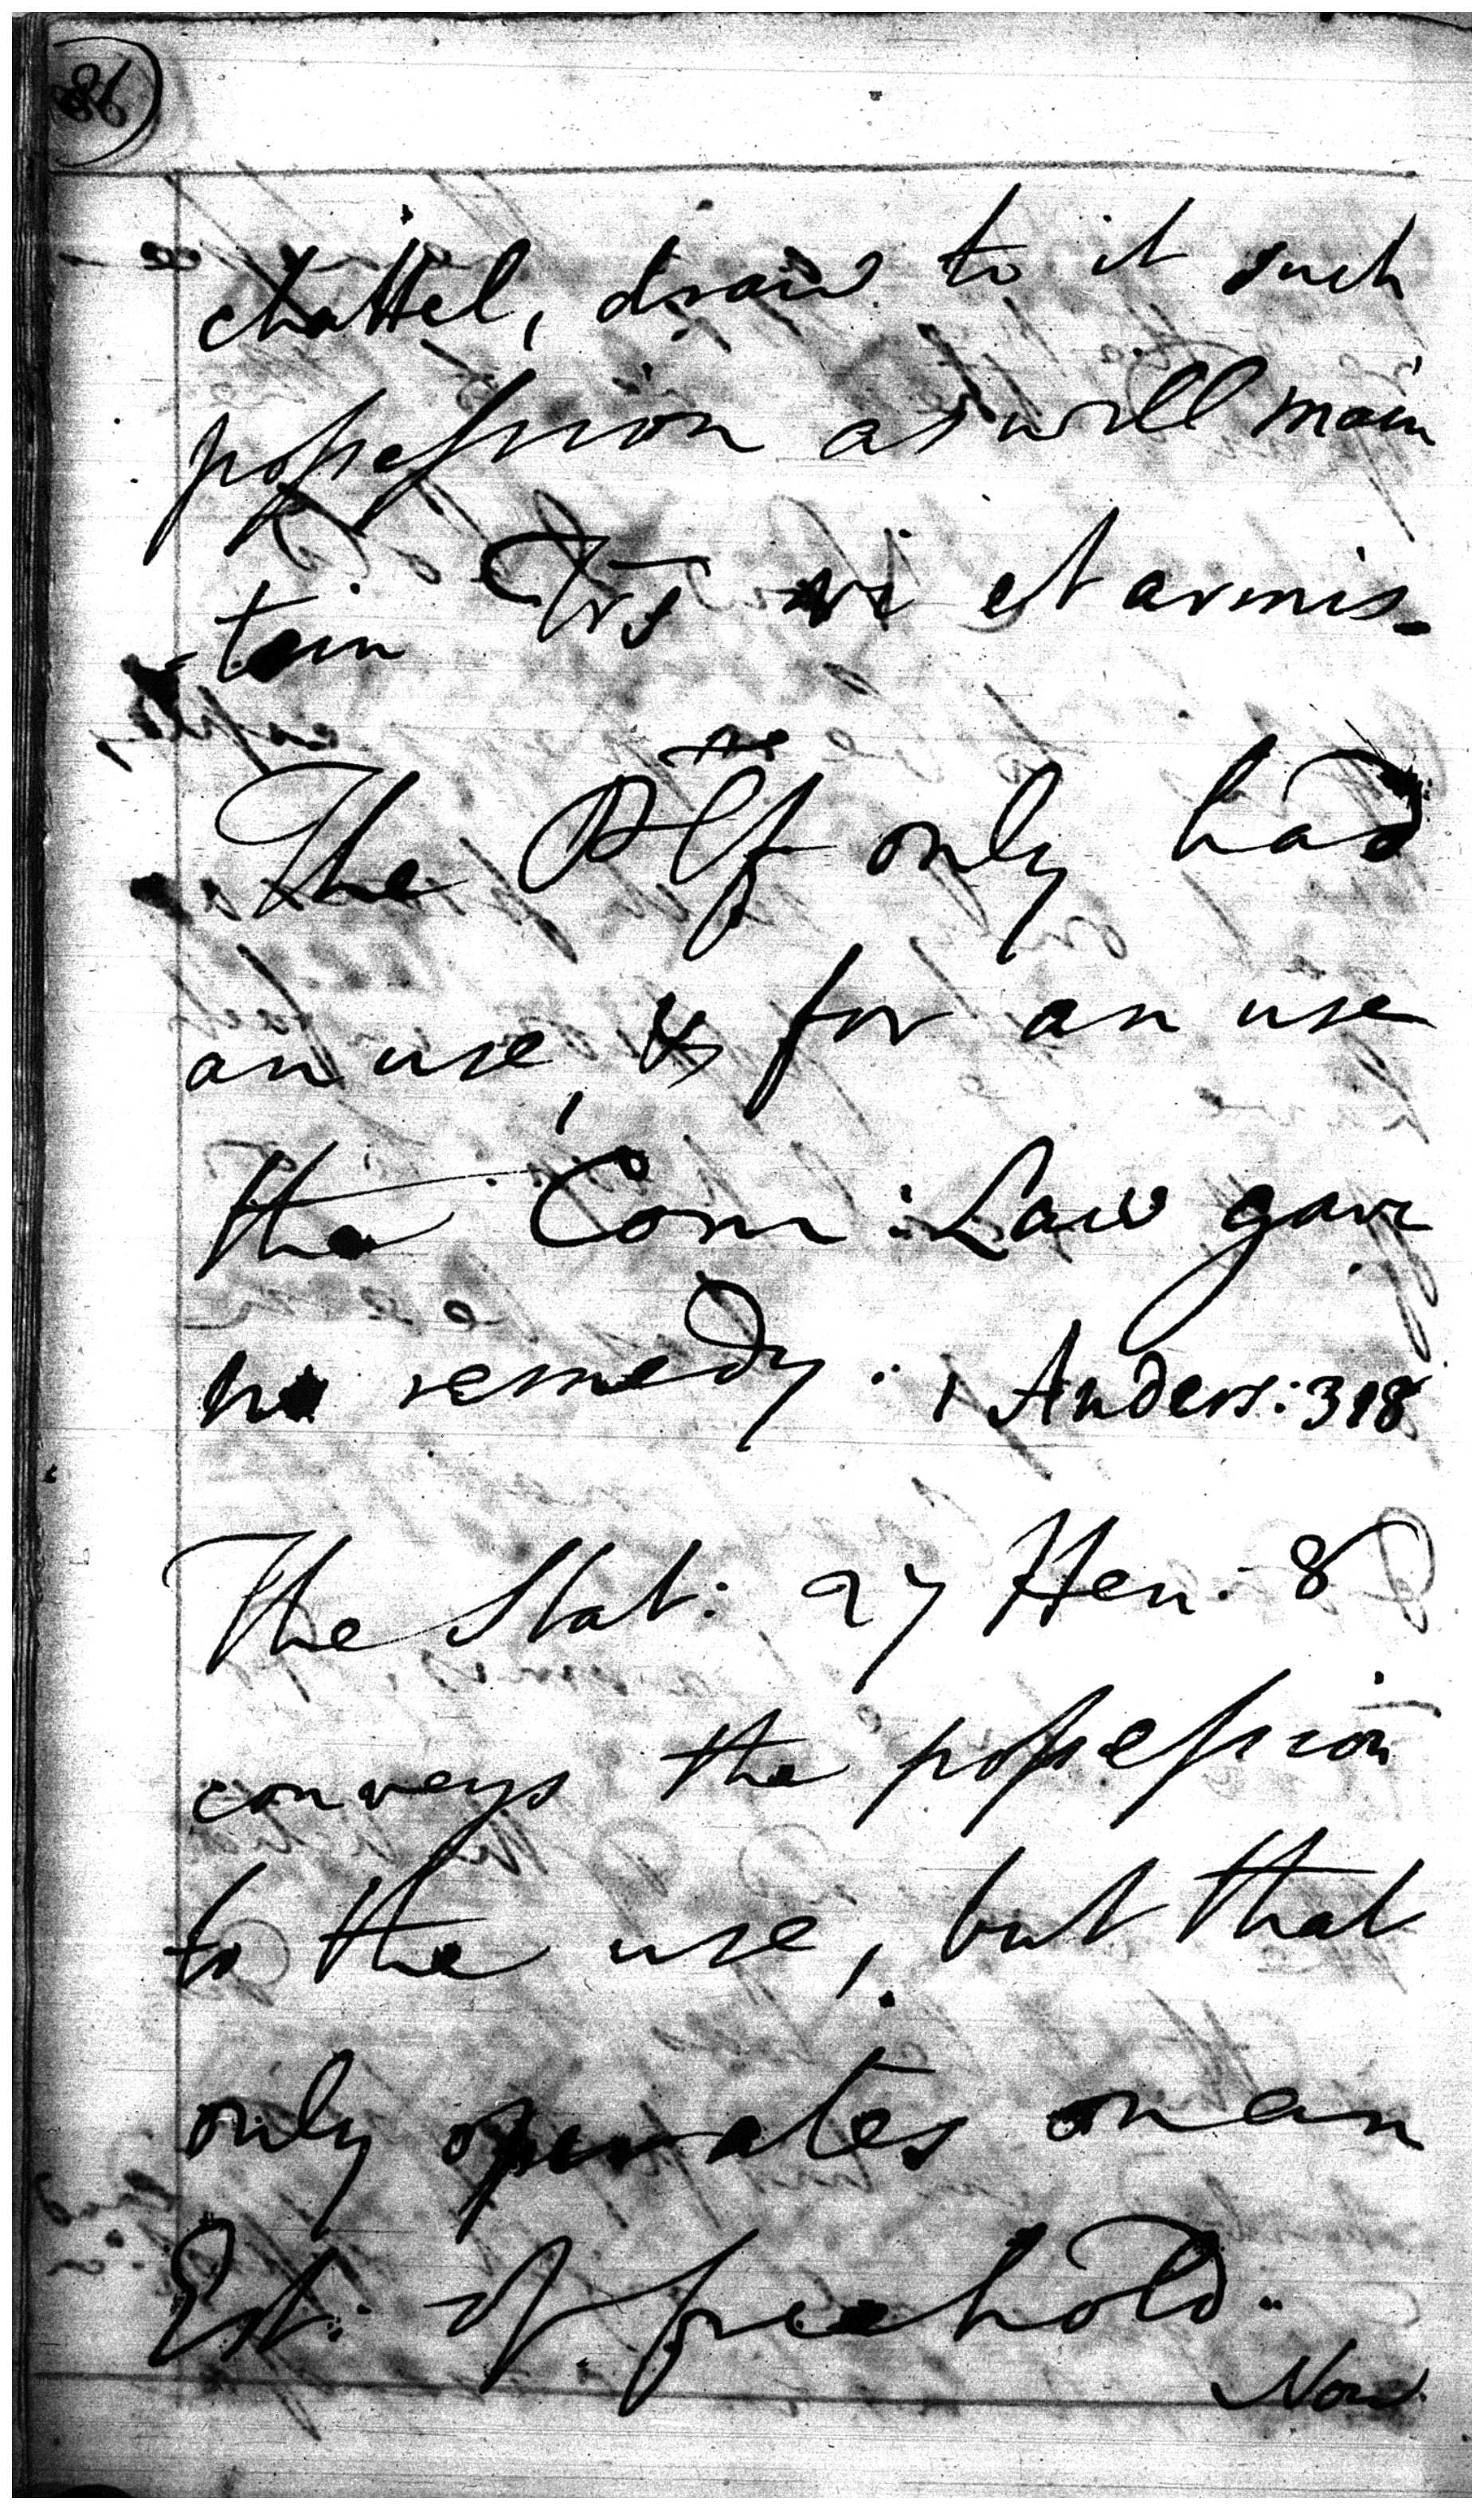 86
chattel, draw to it such
possession as will main
-tain Trs vi et armis.
The Pltf only had
an use, & for an use
the Com: Law gave
no remedy. 1 Anders: 318
The Stat: 27 Hen: 8
conveys the possession
to the use, but that
only operates on an
Est: of freehold.
Now